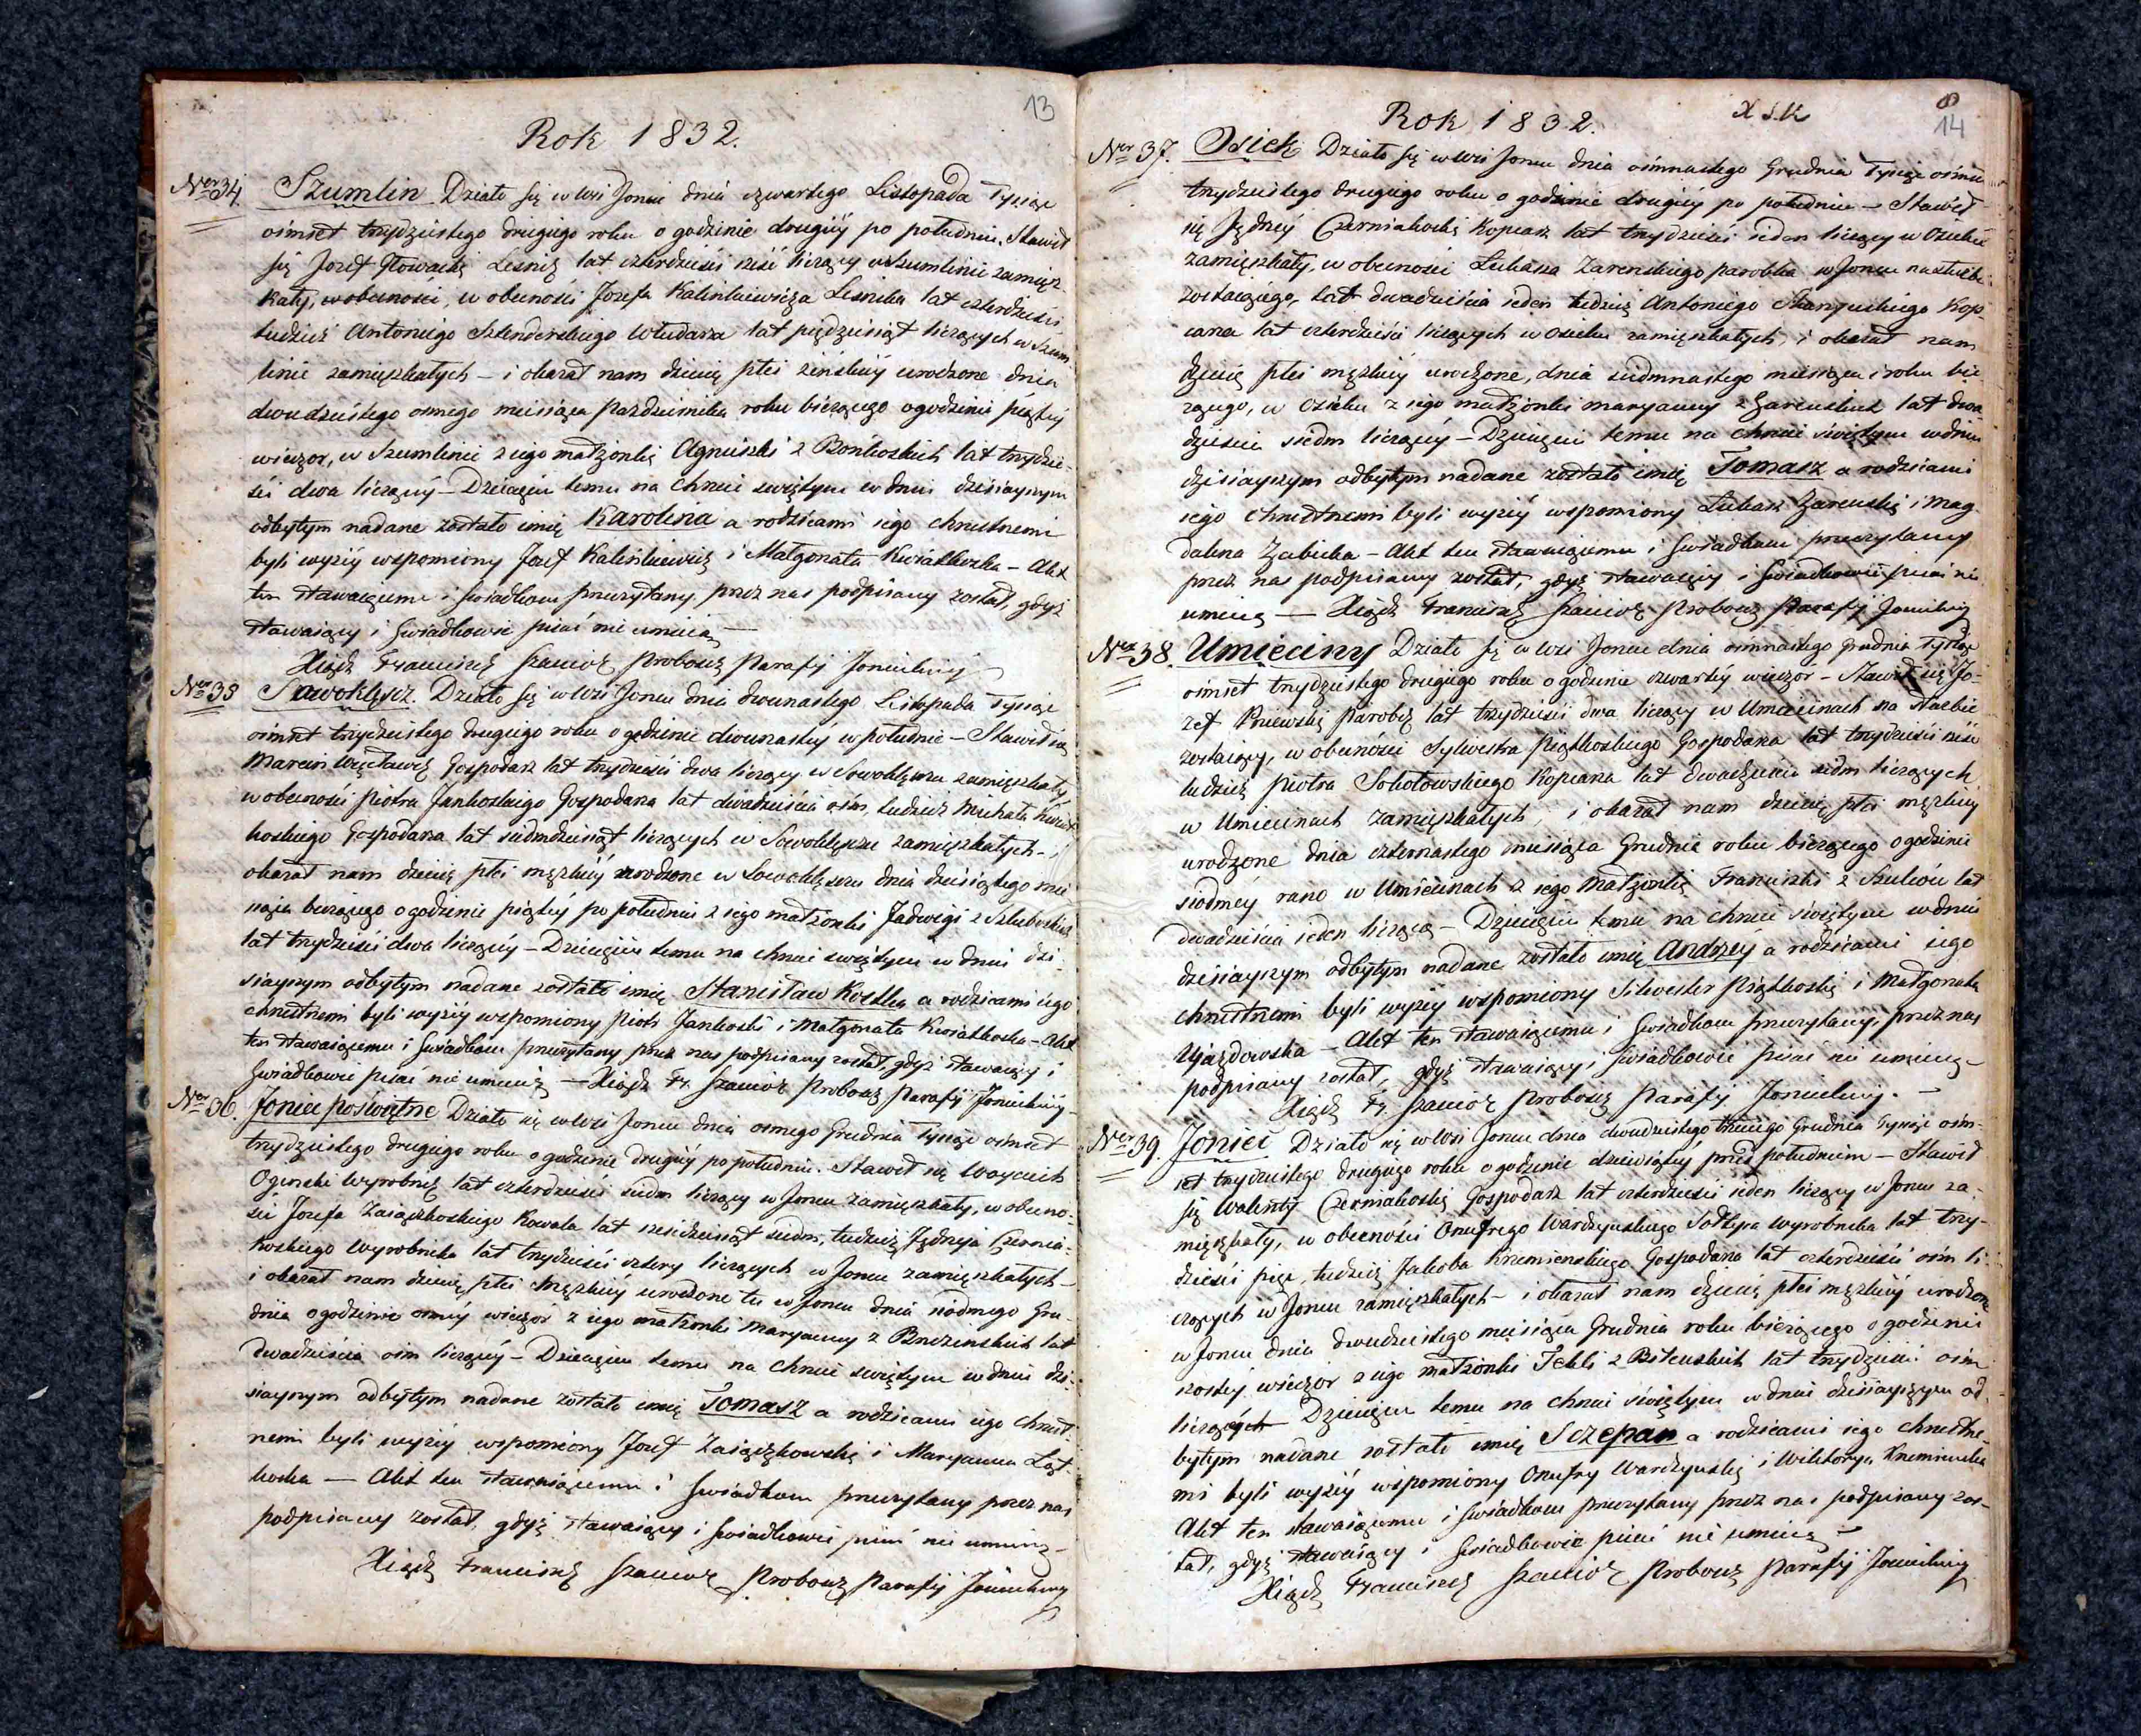 13
Rok 1832.
Nro 34. Szumlin Działo się w Wsi Joncu dnia czwartego Listopada Tysiąc
ośmset trzydziestego drugiego roku o godzinie drugiéy po południu. Stawił
się Jozef Głowacki Leśnik lat czterdzieści sześć liczący w Szumlinie zamięsz-
kały, w obecności, w obecności Jozefa Kalinkiewicza Lesnika lat czterdzieści
tudzież Antoniego Sztenderskiego Włudarza lat pięćdziesiąt liczących w Szum
linie zamięszkałych – i okazał nam dziecię płci żeńskiéy urodzone dnia
dwudziestego osmego miesiąca Pazdziernika roku bieżącego o godzinie piątéy
wieczor, w Szumlinie z iego małżonki Agnieszki z Bonkoskich lat trzydzie-
ści dwa liczącéy – Dziecięciu temu na chrzcie swiętym w dniu dzisiayszym
odbytym nadane zostało imię Karolina a rodzicami iego chrzestnemi
byli wyżéy wspomniony Jozef Kalińkiewicz i Małgorzata Kwiatkoska – Akt
ten stawaiącemu i świadkom przeczytany, przez nas podpisany został, gdyż
stawaiący i świadkowie pisać nie umieią –
Xiądz Franciszek Proboszcz Parafij Jonieckiéy
Nro 35 Sawokłęscz. Działo się w Wsi Joncu dnia dwunastego Listopada Tysiąc
ośmset trzydziestego drugiego roku o godzinie dwunastey w południe – Stawił się
Marcin Gospodarz lat trzydzieści dwa liczący w zamięszkały
w obecności Piotra Jankoskiego Gospodarza lat dwadzieścia ośm, tudzież Michała Kwiat
koskiego Gospodarza lat siedmdziesiąt liczących w zamięszkałych – i
okazał nam dziecię płci męzkiéy urodzone w dnia dziesiątego mie
siąca bieżącego o godzinie piątéy po południu z iego małżonki Jadwigi z
lat trzydzieści dwa liczącéy – Dziecięciu temu na chrzcie swiętym w dniu dzi-
siayszym odbytym nadane zostało imię Stanisław Kostka a rodzicami iego
chrzestnemi byli wyżéy wspomniony Piotr Jankoski i Małgorzata Kwiatkoska – Akt
ten stawaiącemu i świadkom przeczytany przez nas podpisany został, gdyż stawaiący i
świadkowie pisać nie umieią – Xiądz Fr. Proboszcz Parafij Jonieckiéy –
Nro 36. Joniec poświętne Działo się w Wsi Joncu dnia osmego Grudnia Tysiąc ośmset
trzydziestego drugiego roku o godzinie drugiéy po południu. Stawił się Woyciech
Ogiński Wyrobnik lat czterdzieści siedm liczący w Joncu zamięszkały, w obecno-
ści Jozefa Zaiączkoskiego Kowala lat sześćdziesiąt siedm, tudzież Jędrzeja Czernia-
koskiego Wyrobnika lat trzydzieści cztery liczących w Joncu zamięszkałych –
i okazał nam dziecię płci męzkiéy urodzone tu w Joncu dnia siodmego Gru-
dnia o godzinie osméy wieczór z iego małżonki Maryanny z Budzinskich lat
dwadzieścia ośm liczącéy – Dziecięciu temu na chrzcie swiętym w dniu dzi-
siayszym odbytym nadane zostało imię Tomasz a rodzicami iego chrzest-
nemi byli wyżéy wspomniony Jozef Zaiączkowski i Maryanna
– Akt ten stawaiącemu i świadkom przeczytany przez nas
podpisany został, gdyż stawaiący i świadkowie pisać nie umieią –
Xiądz Franciszek Proboszcz Parafij Jonieckiéy
Rok 1832.
14
Nro 37. Osiek Działo się w Wsi Joncu dnia ośmnastego Grudnia Tysiąc ośmse
trzydziestego drugiego roku o godzinie drugiéy po południu – Stawił
się Jędrzéy Czerniakoski Kopiarz lat trzydzieści ieden liczący w Osieku
zamięszkały, w obecności Łukasza Zarenskiego parobka w Joncu na służbie
zostaiącego, lat dwadzieścia ieden tudzież Antoniego Kop-
iarza lat czterdzieści liczących w Osieku zamięszkałych, i okazał nam
dziecię płci męzkiéy urodzone, dnia siedmnastego miesiąca i roku bie
żącego, w Osieku z iego małżonki Maryanny z Zarenskich lat dwa
dzieścia siedm liczącéy – Dziecięciu temu na chrzcie świętym w dniu
dzisiayszym odbytym nadane zostało imię Tomasz a rodzicami
iego chrzestnemi byli wyżéy wspomniony Łukasz Zarenski i Mag
dalena Zabicka – Akt ten stawaiącemu i świadkom przeczytany
przez nas podpisany został, gdyż stawaiący i świadkowie pisać nie
umieią – Xiądz Franciszek Proboszcz Parafij Jonieckiéy
Nro 38. Umieciny Działo się w Wsi Joncu dnia ośmnastego Grudnia Tysiąc
ośmset trzydziestego drugiego roku o godzinie czwartéy wieczór – Stawił się Jo-
zef Pniewski Parobek lat trzydzieści dwa liczący w Umiecinach na służbie
zostaiący, w obecności Sylwestra Piątkoskiego Gospodarza lat trzydzieści sześć
tudzież Piotra Sokołowskiego Kopiarza lat dwadzieścia siedm liczących
w Umiecinach zamięszkałych, i okazał nam dziecię płci męzkiéy
urodzone dnia czternastego miesiąca Grudnia roku bieżącego o godzinie
siodméy rano w Umiecinach z iego Małżonki Franciszki z Szulców lat
dwadzieścia ieden liczącą – Dziecięciu temu na chrzcie świętym w dniu
dzisiayszym odbytym nadane zostało imię Andrzéy a rodzicami iego
chrzestnemi byli wyżéy wspomniony Silwester Piątkoski i Małgorzata
Ujazdowska – Akt ten stawaiącemu i świadkom przeczytany, przez nas
podpisany został, gdyż stawaiący i świadkowie pisać nie umieią –
Xiądz Fr. Proboszcz Parafij Jonieckiey. –
Nro 39. Joniec Działo się w Wsi Joncu dnia dwudziestego trzeciego Grudnia Tysiąc ośm-
set trzydziestego drugiego roku o godzinie dziewiątéy przed południem – Stawił
się Walenty Czerniakoski Gospodarz lat czterdzieści ieden liczący w Joncu za-
mięszkały, w obecności Onufrego Wardzyńskiego Sołtysa Wyrobnika lat trzy-
dzieści pięć, tudzież Jakoba Krzemienskiego Gospodarza lat czterdzieści ośm li
czących w Joncu zamięszkałych – i okazał nam dziecię płci męzkiéy urodzone
w Joncu dnia dwudziestego miesiąca Grudnia roku bieżącego o godzinie
szostéy wieczor z iego małżonki Tekli z lat trzydzieści ośm
liczących Dziecięciu temu na chrzcie świętym w dniu dzisiayszym od
bytym nadane zostało imię Sczepan a rodzicami iego chrzestne-
mi byli wyżéy wspomniony Onufry Wardzyński i Wiktorya Krzemienska
Akt ten stawaiącemu i świadkom przeczytany przez nas podpisany zos-
tał, gdyż stawaiący i świadkowie pisać nie umieią –
Xiądz Franciszek Proboszcz Parafij Jonieckiéy